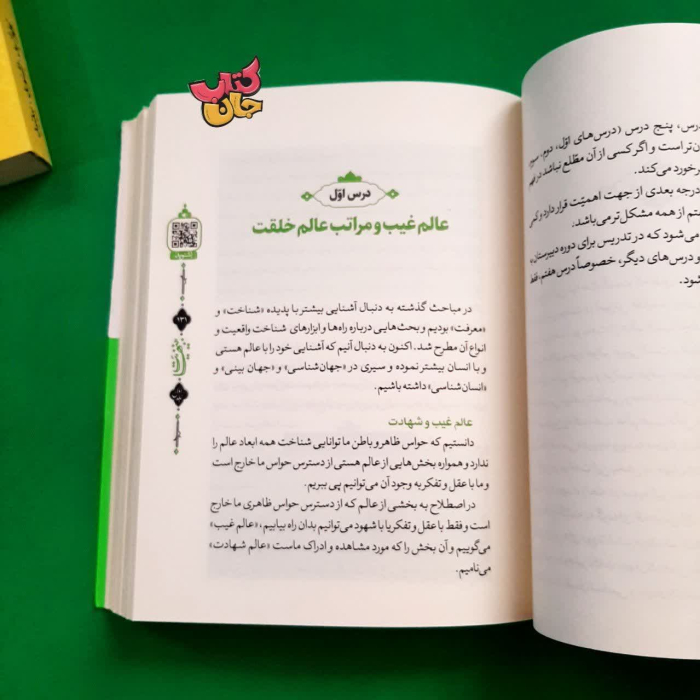 کتاب
جان
درس اوّل
عالم غیب و مراتب عالم خلقت
در مباحث گذشته به دنبال آشنایی بیشتر با پدیده «شناخت» و
«معرفت» بودیم و بحث‌هایی درباره راه‌ها و ابزارهای شناخت واقعیت و
انواع آن مطرح شد. اکنون به دنبال آنیم که آشنایی خود را با عالم هستی
و با انسان بیشتر نموده و سیری در «جهان‌شناسی» و «جهان بینی» و
«انسان‌شناسی» داشته باشیم.
عالم غیب و شهادت
دانستیم که حواس ظاهر و باطن ما توانایی شناخت همه ابعاد عالم را
ندارد و همواره بخش‌هایی از عالم هستی از دسترس حواس ما خارج است
و ما با عقل و تفکر به وجود آن می‌توانیم پی ببریم.
در اصطلاح به بخشی از عالم که از دسترس حواس ظاهری ما خارج
است و فقط با عقل و تفکر یا با شهود می‌توانیم بدان راه بیابیم، «عالم غیب»
می‌گوییم و آن بخش را که مورد مشاهده و ادراک ماست «عالم شهادت»
می‌نامیم.
۱۳۱
درس، پنج درس (درس‌های اوّل، دوم، سوم
ن‌تر است و اگر کسی از آن مطّلع نباشد در فهم
رخورد می‌کند.
درجه بعدی از جهت اهمیّت قرار دارد و کسی
تم از همه مشکل‌تر می‌باشد.
می‌شود که در تدریس برای دوره دبیرستان،
و درس‌های دیگر، خصوصاً درس هفتم، فقط
شود.